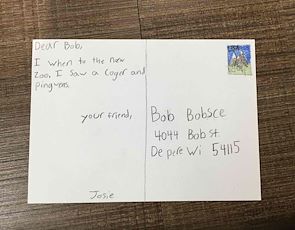 Dear Bob,
I when to the new
Zoo. I Saw a Coger and
pingwens.
your friend,
Josie
Bob Bobsce
4044 Bob st.
De pere Wi 54115